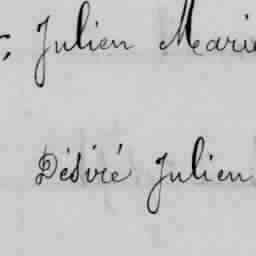 Julien Marie
Désiré Julien